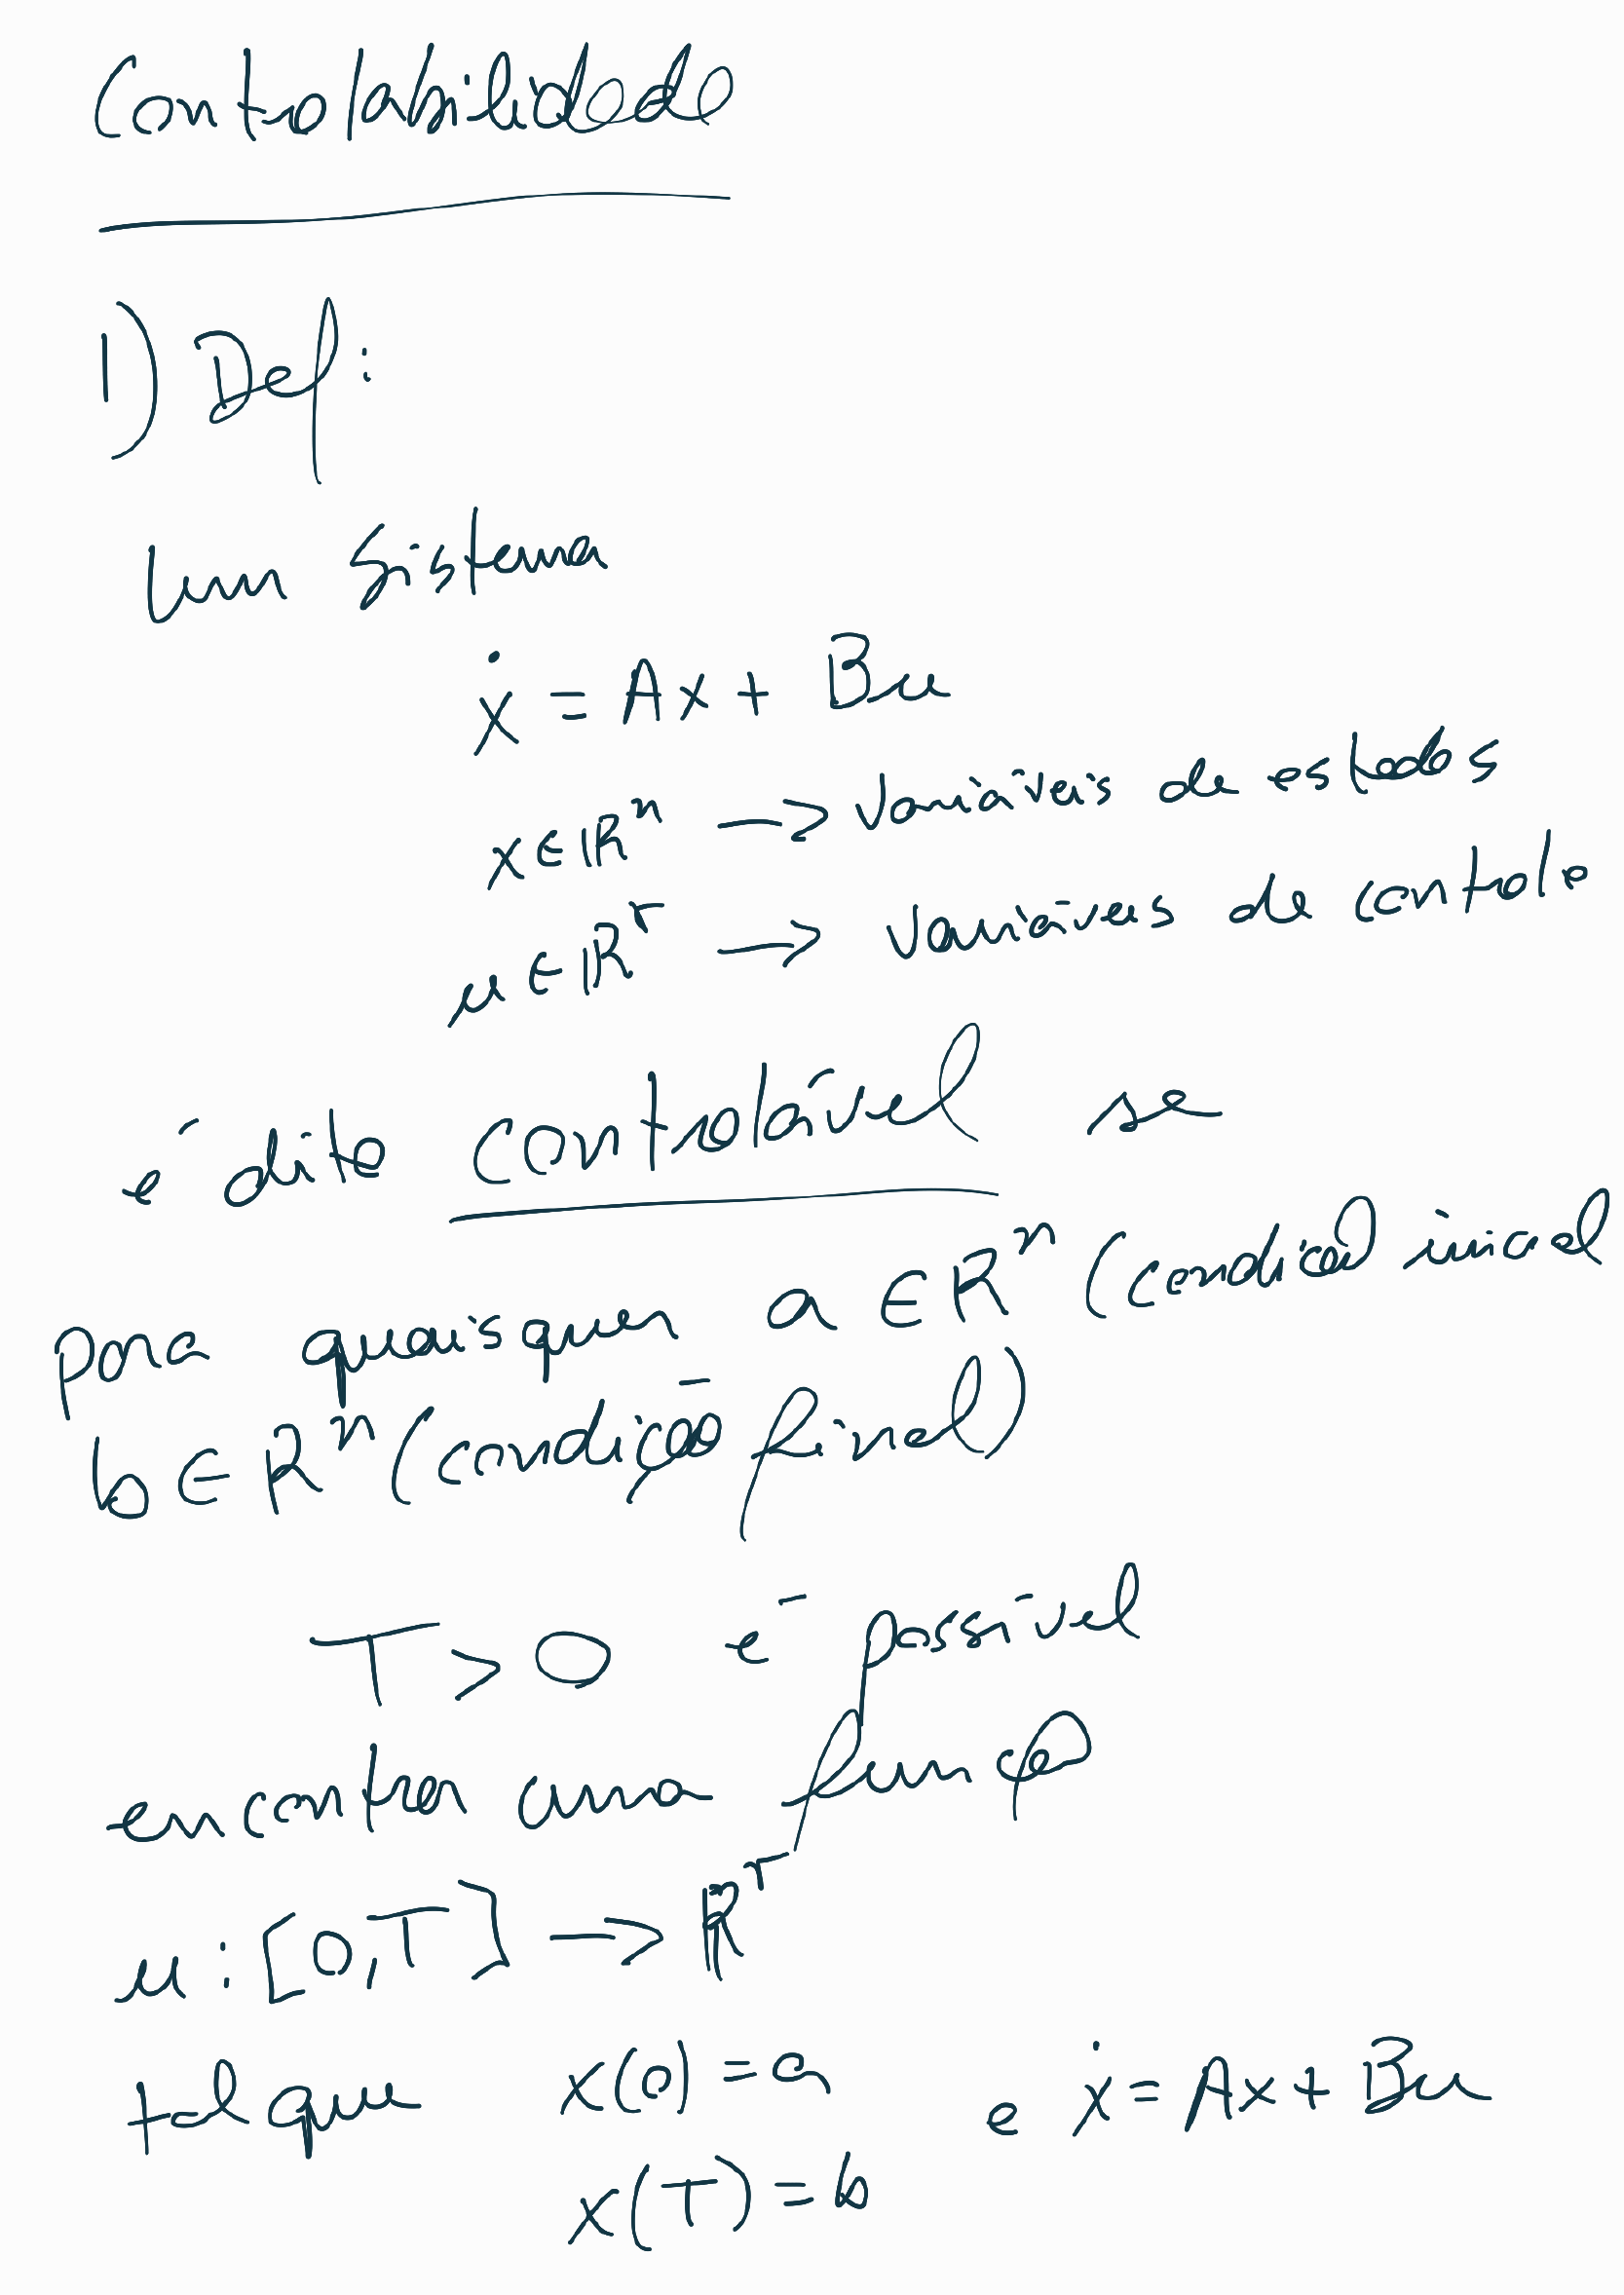 Controlabilidade
1) Def:
Um sistema
ẋ = Ax + Bu
x ∈ ℝⁿ → variáveis de estados
u ∈ ℝʳ → variáveis de controle
é dito controlável se
para quaisquer a ∈ ℝⁿ (condição inicial
b ∈ ℝⁿ (condição final)
T > 0 é possível
encontrar uma função
u : [0,T] → ℝʳ
tal que x(0) = a e ẋ = Ax + Bu
x(T) = b